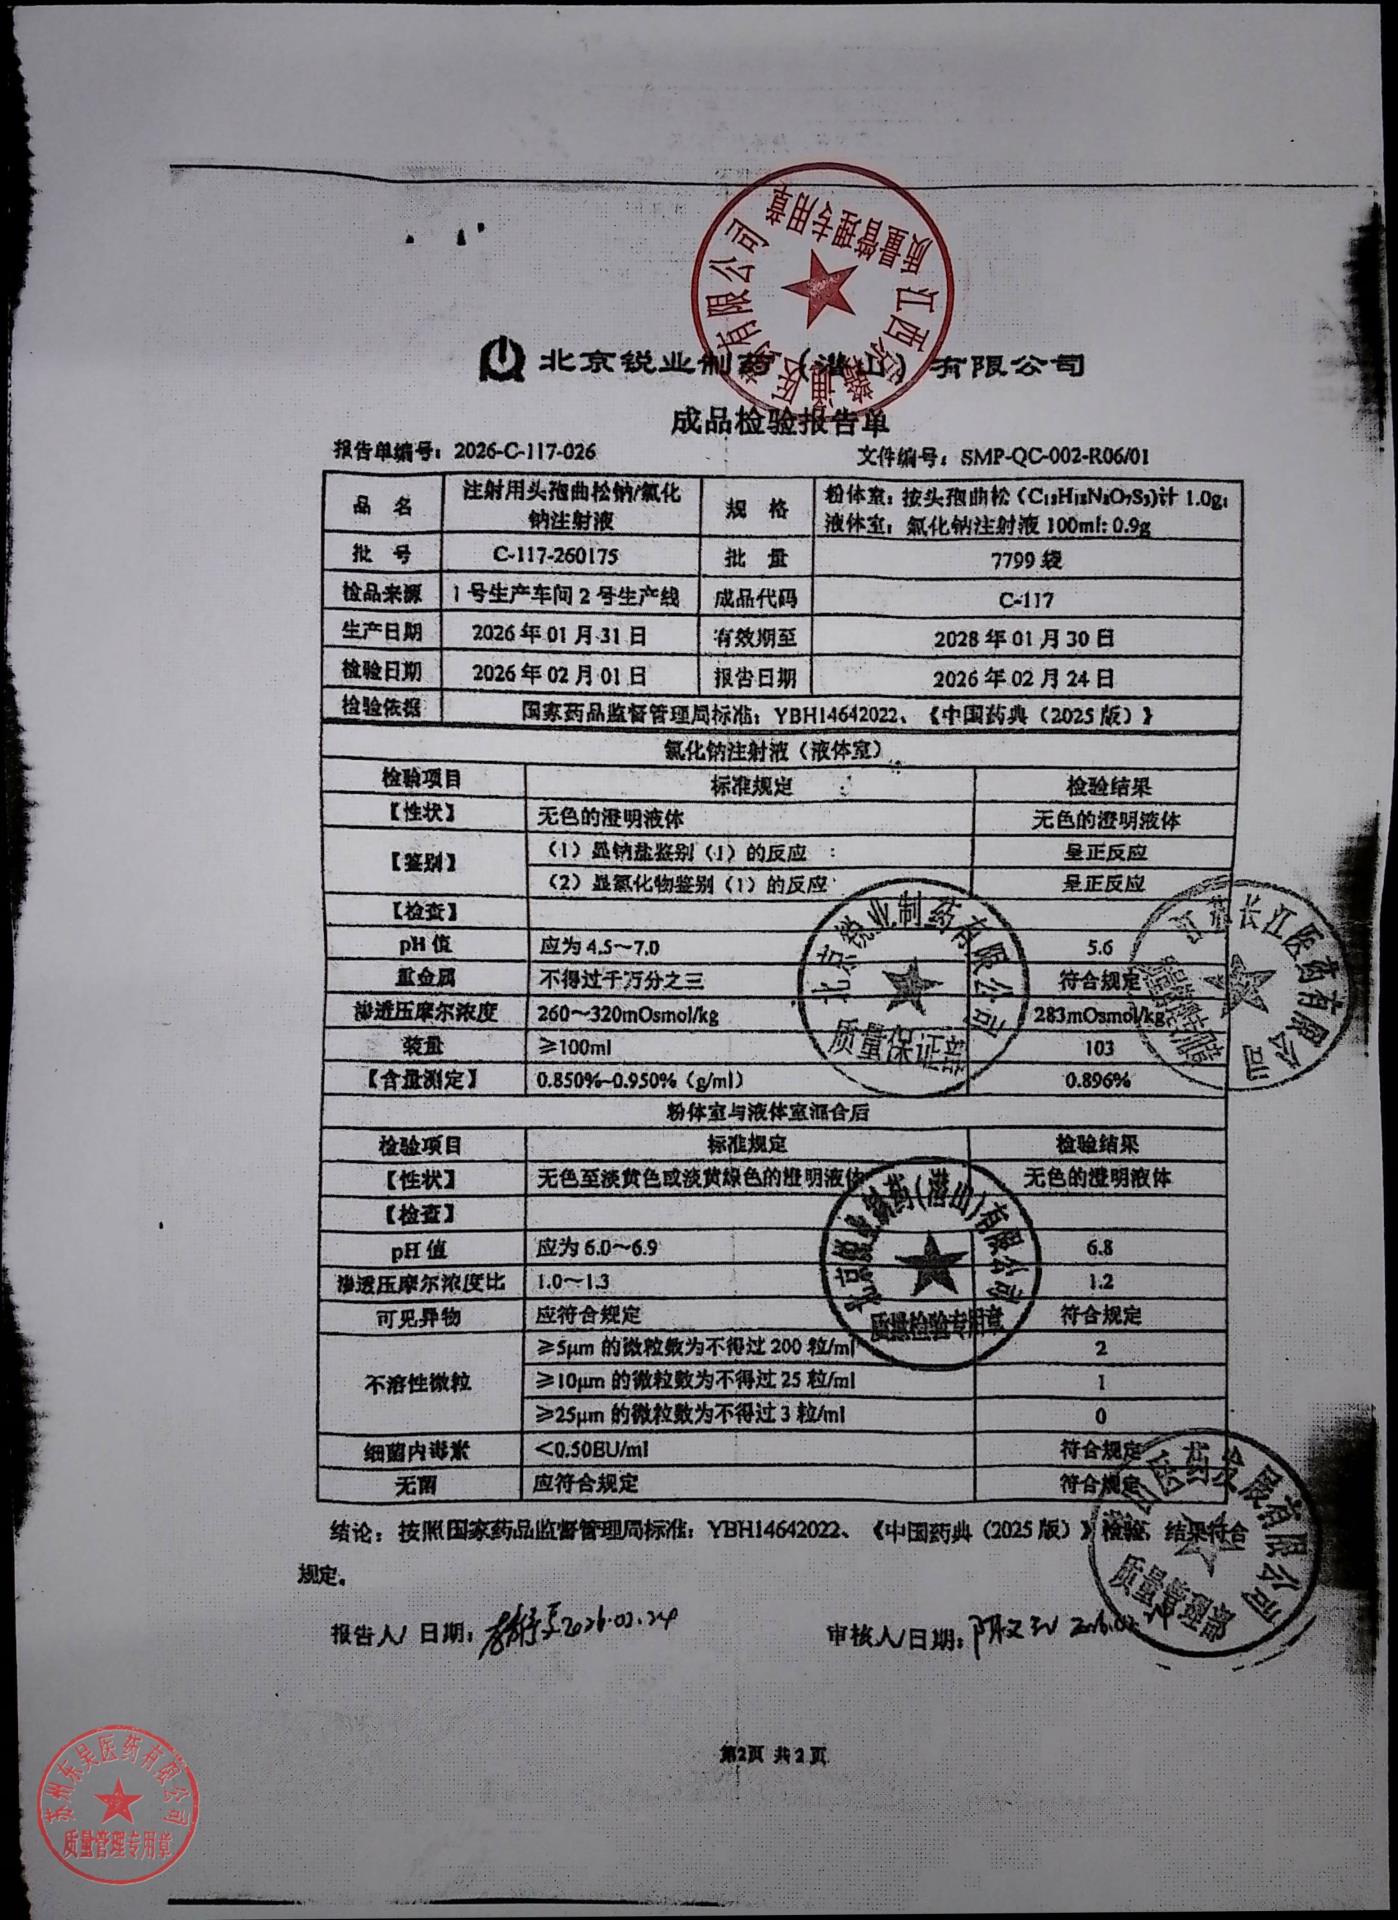 质量管理专用章
北京锐业制药（潜山）有限公司
成品检验报告单
报告单编号：2026-C-117-026 文件编号：SMP-QC-002-R06/01
品 名 注射用头孢曲松钠/氯化钠注射液 规 格 粉体室：按头孢曲松（C₁₈H₁₈N₈O₇S₃)计 1.0g；
液体室：氯化钠注射液 100ml: 0.9g
批 号 C-117-260175 批 量 7799 袋
检品来源 1 号生产车间 2 号生产线 成品代码 C-117
生产日期 2026 年 01 月 31 日 有效期至 2028 年 01 月 30 日
检验日期 2026 年 02 月 01 日 报告日期 2026 年 02 月 24 日
检验依据 国家药品监督管理局标准：YBH14642022、《中国药典（2025 版）》
氯化钠注射液（液体室）
检验项目 标准规定 检验结果
【性状】 无色的澄明液体 无色的澄明液体
【鉴别】 （1）显钠盐鉴别（1）的反应 呈正反应
（2）显氯化物鉴别（1）的反应 呈正反应
【检查】
pH 值 应为 4.5～7.0 5.6
重金属 不得过千万分之三 符合规定
渗透压摩尔浓度 260～320mOsmol/kg 283mOsmol/kg
装量 ≥100ml 103
【含量测定】 0.850%~0.950%（g/ml） 0.896%
北京锐业制药有限公司
质量保证部
长江医药有限公司
粉体室与液体室混合后
检验项目 标准规定 检验结果
【性状】 无色至淡黄色或淡黄绿色的澄明液体 无色的澄明液体
【检查】
pH 值 应为 6.0～6.9 6.8
渗透压摩尔浓度比 1.0～1.3 1.2
可见异物 应符合规定 符合规定
不溶性微粒 ≥5μm 的微粒数为不得过 200 粒/ml 2
≥10μm 的微粒数为不得过 25 粒/ml 1
≥25μm 的微粒数为不得过 3 粒/ml 0
细菌内毒素 <0.50EU/ml 符合规定
无菌 应符合规定 符合规定
北京锐业制药(潜山)有限公司
质量检验专用章
结论：按照国家药品监督管理局标准：YBH14642022、《中国药典（2025 版）》检验，结果符合
规定。
医药发展有限公司
质量管理部
报告人/ 日期： 2026.02.24 审核人/日期：
第2页 共 2 页
苏州东吴医药有限公司
质量管理专用章